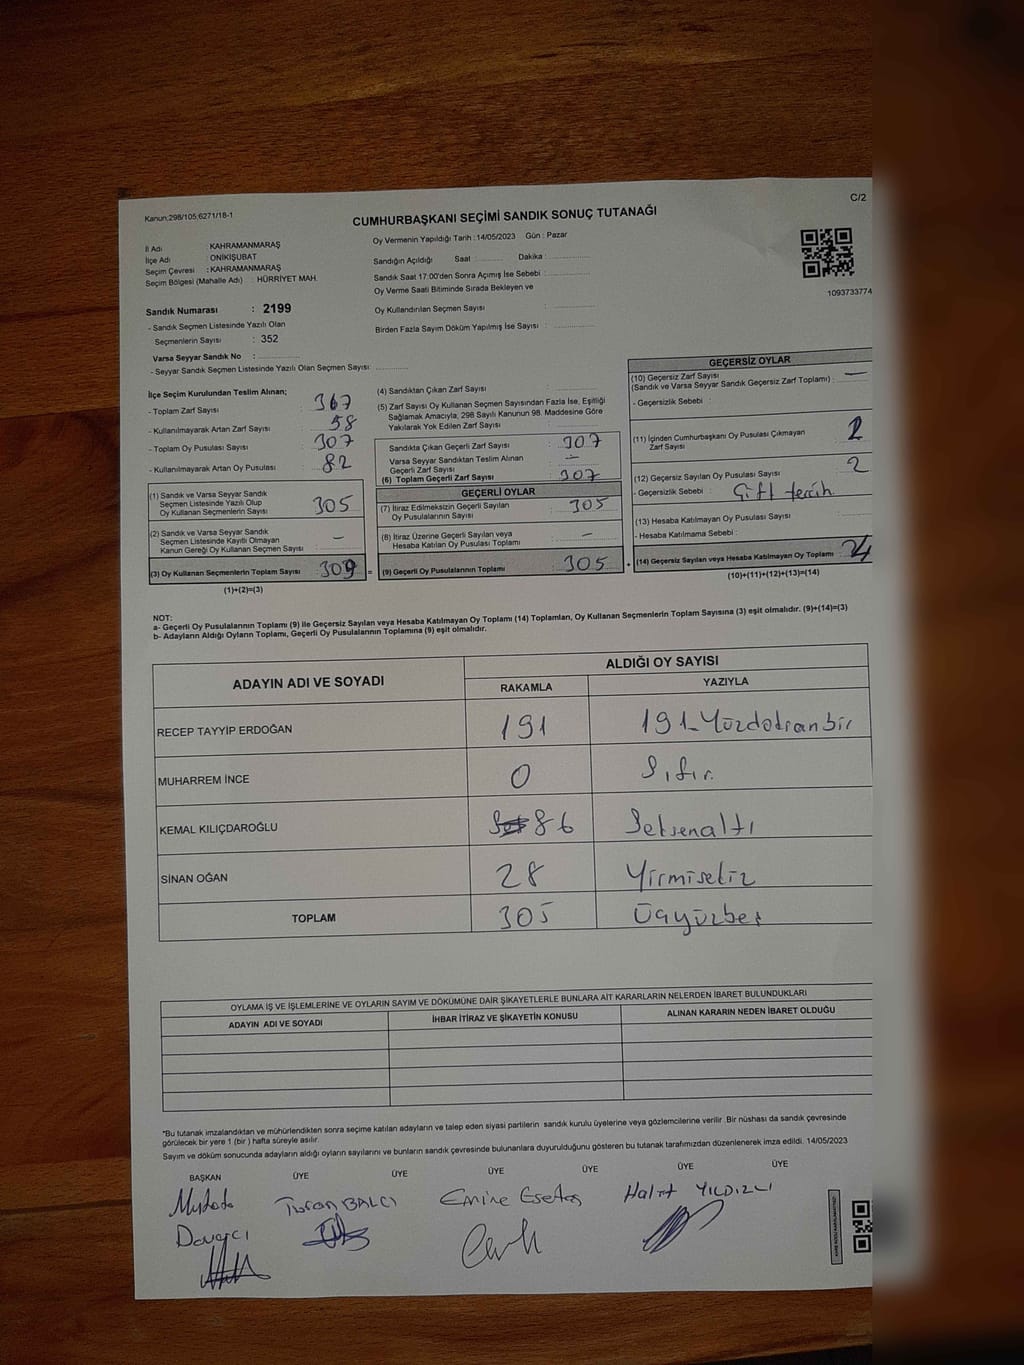 Kanun:298/105;6271/18-1
C/2
CUMHURBAŞKANI SEÇİMİ SANDIK SONUÇ TUTANAĞI
İl Adı : KAHRAMANMARAŞ
İlçe Adı : ONİKİŞUBAT
Seçim Çevresi : KAHRAMANMARAŞ
Seçim Bölgesi (Mahalle Adı) : HÜRRİYET MAH.
Oy Vermenin Yapıldığı Tarih :14/05/2023 Gün : Pazar
Sandığın Açıldığı Saat : Dakika :
Sandık Saat 17:00'den Sonra Açımış İse Sebebi :
Oy Verme Saati Bitiminde Sırada Bekleyen ve
Oy Kullandırılan Seçmen Sayısı :
Birden Fazla Sayım Döküm Yapılmış İse Sayısı :
1093733774
Sandık Numarası : 2199
- Sandık Seçmen Listesinde Yazılı Olan
Seçmenlerin Sayısı : 352
Varsa Seyyar Sandık No :
- Seyyar Sandık Seçmen Listesinde Yazılı Olan Seçmen Sayısı:
İlçe Seçim Kurulundan Teslim Alınan;
- Toplam Zarf Sayısı : 367
- Kullanılmayarak Artan Zarf Sayısı : 58
- Toplam Oy Pusulası Sayısı : 307
- Kullanılmayarak Artan Oy Pusulası : 82
(1) Sandık ve Varsa Seyyar Sandık
Seçmen Listesinde Yazılı Olup
Oy Kullanan Seçmenlerin Sayısı : 305
(2) Sandık ve Varsa Seyyar Sandık
Seçmen Listesinde Kayıtlı Olmayan
Kanun Gereği Oy Kullanan Seçmen Sayısı : -
(3) Oy Kullanan Seçmenlerin Toplam Sayısı : 309 =
(1)+(2)=(3)
(4) Sandıktan Çıkan Zarf Sayısı :
(5) Zarf Sayısı Oy Kullanan Seçmen Sayısından Fazla İse, Eşitliği
Sağlamak Amacıyla, 298 Sayılı Kanunun 98. Maddesine Göre
Yakılarak Yok Edilen Zarf Sayısı :
Sandıkta Çıkan Geçerli Zarf Sayısı : 307
Varsa Seyyar Sandıktan Teslim Alınan
Geçerli Zarf Sayısı : -
(6) Toplam Geçerli Zarf Sayısı : 307
GEÇERLİ OYLAR
(7) İtiraz Edilmeksizin Geçerli Sayılan
Oy Pusulalarının Sayısı : 305
(8) İtiraz Üzerine Geçerli Sayılan veya
Hesaba Katılan Oy Pusulası Toplamı : -
(9) Geçerli Oy Pusulalarının Toplamı : 305 +
GEÇERSİZ OYLAR
(10) Geçersiz Zarf Sayısı
(Sandık ve Varsa Seyyar Sandık Geçersiz Zarf Toplamı) : -
- Geçersizlik Sebebi :
(11) İçinden Cumhurbaşkanı Oy Pusulası Çıkmayan
Zarf Sayısı : 2
(12) Geçersiz Sayılan Oy Pusulası Sayısı : 2
- Geçersizlik Sebebi : Çift tercih
(13) Hesaba Katılmayan Oy Pusulası Sayısı :
- Hesaba Katılmama Sebebi :
(14) Geçersiz Sayılan veya Hesaba Katılmayan Oy Toplamı : 4
(10)+(11)+(12)+(13)=(14)
NOT:
a- Geçerli Oy Pusulalarının Toplamı (9) ile Geçersiz Sayılan veya Hesaba Katılmayan Oy Toplamı (14) Toplamları, Oy Kullanan Seçmenlerin Toplam Sayısına (3) eşit olmalıdır. (9)+(14)=(3)
b- Adayların Aldığı Oyların Toplamı, Geçerli Oy Pusulalarının Toplamına (9) eşit olmalıdır.
ADAYIN ADI VE SOYADI
ALDIĞI OY SAYISI
RAKAMLA YAZIYLA
RECEP TAYYİP ERDOĞAN 191 191-Yüzdoksanbir
MUHARREM İNCE 0 Sıfır
KEMAL KILIÇDAROĞLU 86 Seksenaltı
SİNAN OĞAN 28 Yirmisekiz
TOPLAM 305 Üçyüzbeş
OYLAMA İŞ VE İŞLEMLERİNE VE OYLARIN SAYIM VE DÖKÜMÜNE DAİR ŞİKAYETLERLE BUNLARA AİT KARARLARIN NELERDEN İBARET BULUNDUKLARI
ADAYIN ADI VE SOYADI İHBAR İTİRAZ VE ŞİKAYETİN KONUSU ALINAN KARARIN NEDEN İBARET OLDUĞU
*Bu tutanak imzalandıktan ve mühürlendikten sonra seçime katılan adayların ve talep eden siyasi partilerin sandık kurulu üyelerine veya gözlemcilerine verilir. Bir nüshası da sandık çevresinde
görülecek bir yere 1 (bir) hafta süreyle asılır.
Sayım ve döküm sonucunda adayların aldığı oyların sayılarını ve bunların sandık çevresinde bulunanlara duyurulduğunu gösteren bu tutanak tarafımızdan düzenlenerek imza edildi. 14/05/2023
BAŞKAN ÜYE ÜYE ÜYE ÜYE ÜYE ÜYE
Turan BALCI Emine Halit YILDIZLI